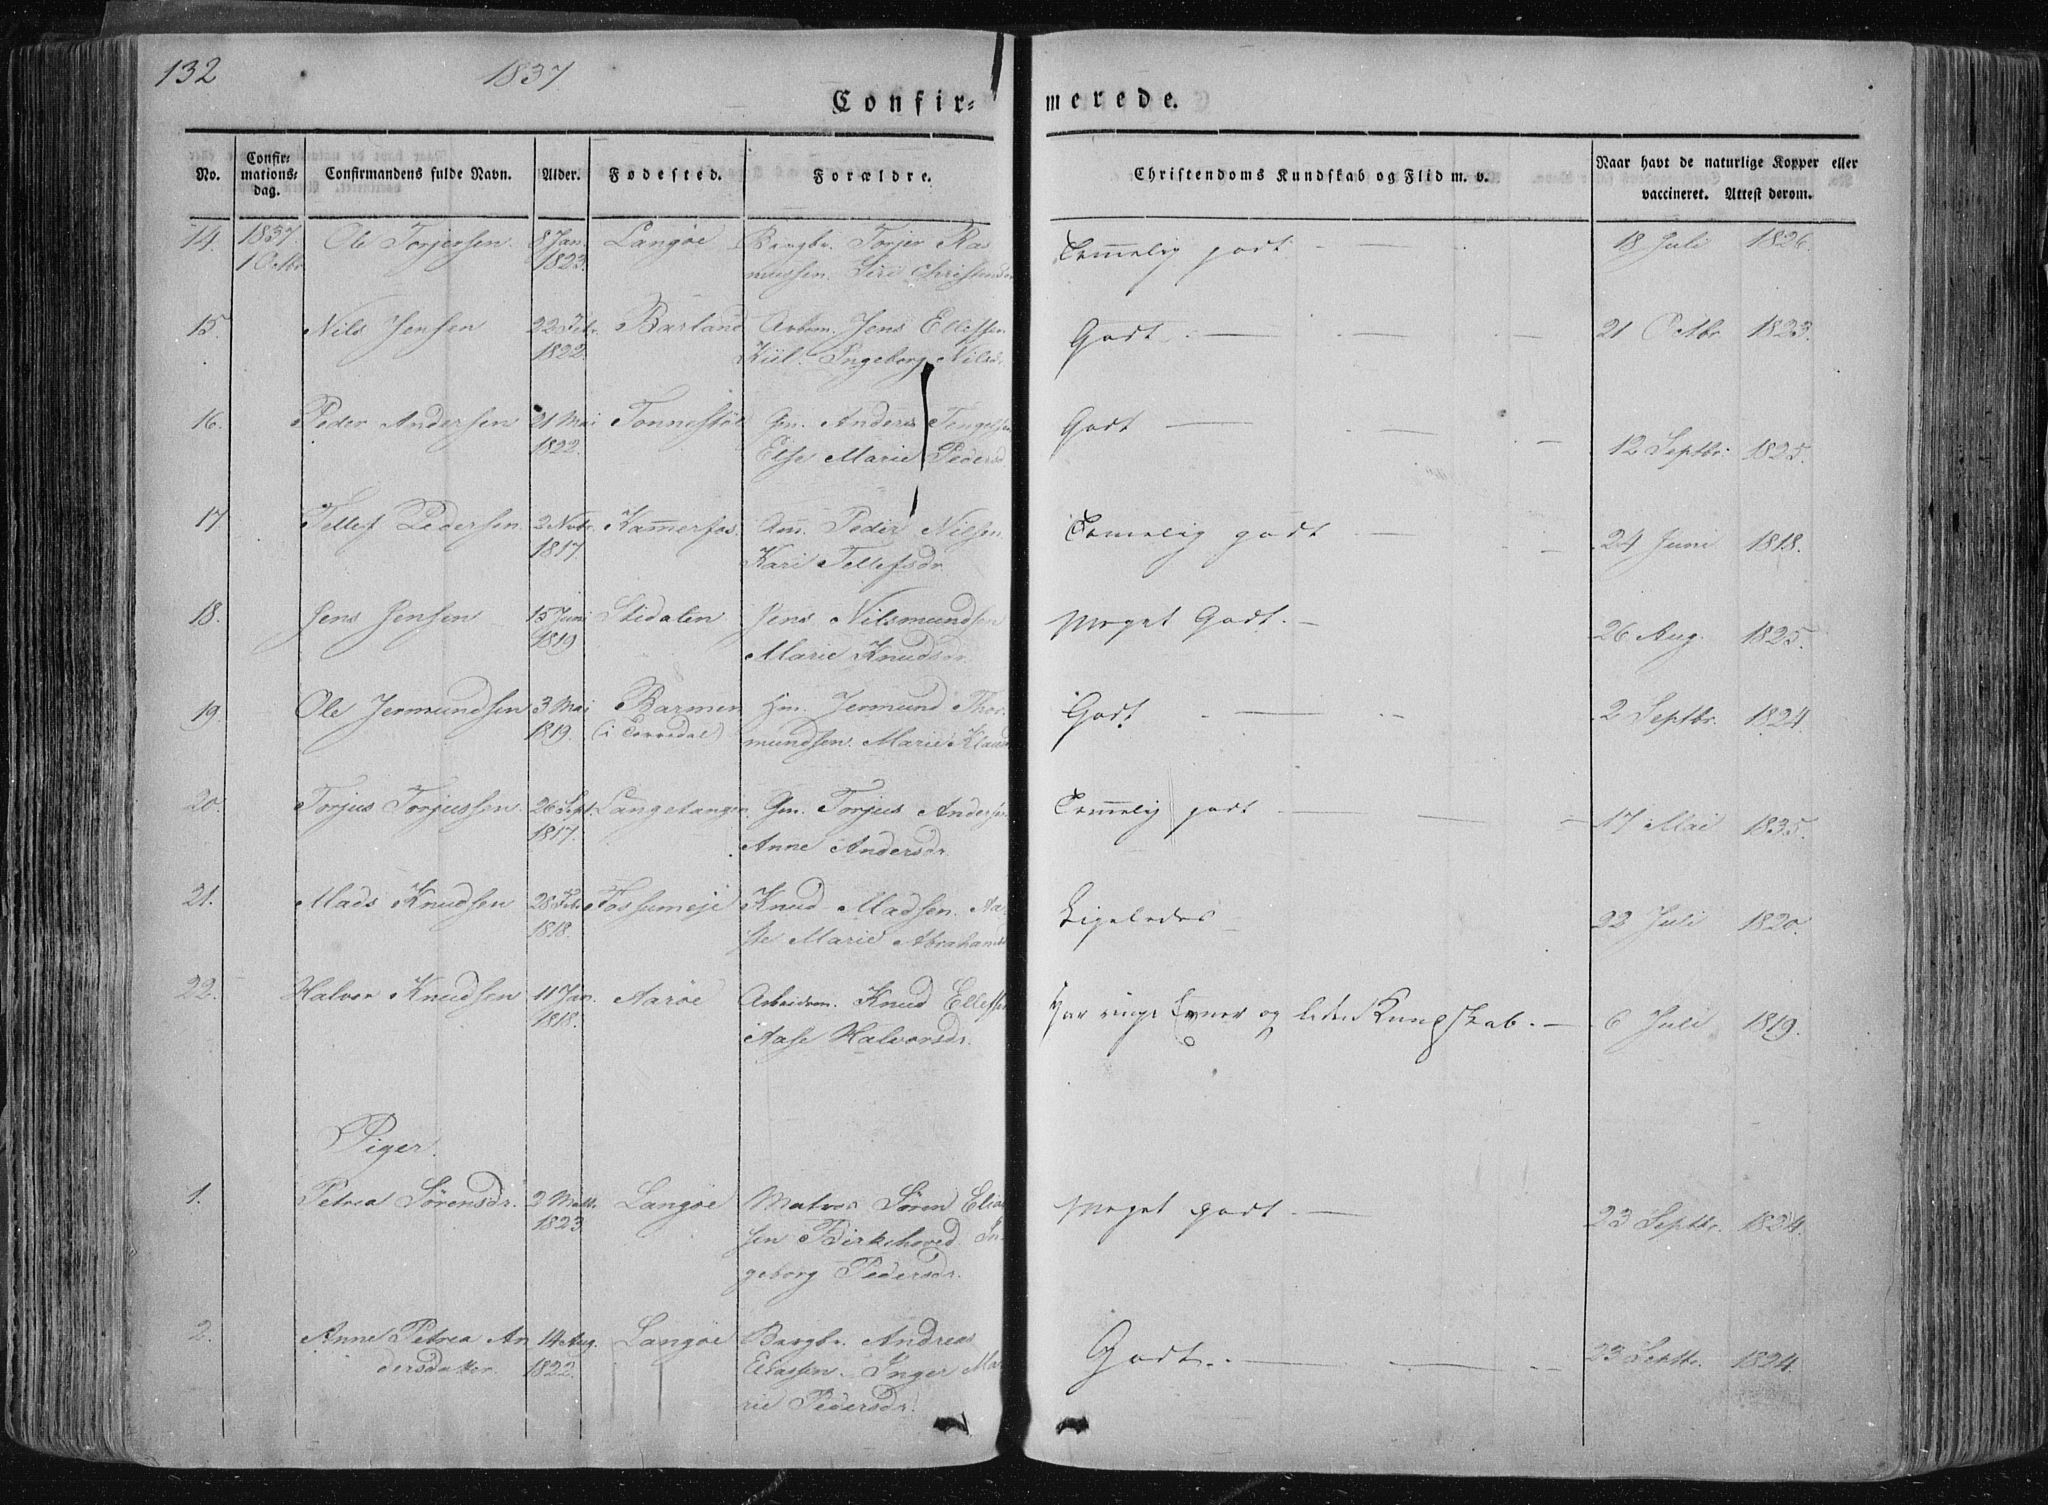 132 1837
Confir- merede.
No. Confir-mations-dag. Confirmandens fulde Navn. Alder. Fødested. Forældre. Christendoms Kundskab og Flid m. v. Naar havt de naturlige Kopper eller vaccineret. Attest derom.
14. 1837. Ole Torjersen. 8 Jan. Langöe Bergbr. Torjer Ras- Temmelig godt 18 Juli 1826.
1 Octbr 1823. mussen. Siri Christensdr
15. Nils Jensen 22 Febr. Barland Arbm. Jens Ellefsen Godt. 21 Octbr. 1823.
1822. Kiil. Ingeborg Nilsd.
16. Peder Andersen 21 Mai Tonnestöl Gm. Anders Tengelsen Godt 12 Septbr. 1825.
1822. Else Marie Pedersd.
17. Tellef Pedersen 2 Novbr. Kammerfos. Gm. Peder Nilsen Temelig godt 24 Juni 1818.
1817. Kari Tellefsdr.
18. Jens Jensen 15 Juni Stidalen Jens Nilsmundsen Meget Godt. 26 Aug. 1825.
1819. Marie Knudsdr.
19. Ole Jermundsen 3 Mai Barmen Hm. Jermund Thor- Godt 2 Septbr. 1824.
1819. (i Torredal) mundsen. Marie
20. Torjus Torjussen. 26 Sept. Langetangen. Gm. Torjus Andersen Temmelig godt 17 Mai 1835.
1817. Anne Andersdr.
21. Mads Knudsen 28 Febr. Fossumeje Knud Madsen. Aa- Ligeledes 22 Juli 1820.
1818. ste Marie Abrahams
22. Halvor Knudsen 11 Jan. Aaröe Arbeidsm. Knud Ellefsen Har ringe Evner og liden Kundskab. 6 Juli 1819.
1818. Aase Halvorsdr.
Piger.
1. Petrea Sörensdr. 2 Langöe Matros Sören Elias- Meget godt. 23 Septbr. 1824.
1823 sen Birkehoved. In-
geborg Pedersdr.
2. Anne Petrea An 14 Aug. Langöe Bergbr. Andreas Godt. 23 Septbr. 1824.
dersdatter. 1822. Eliassen. Inger Ma-
rie Pedersdr.